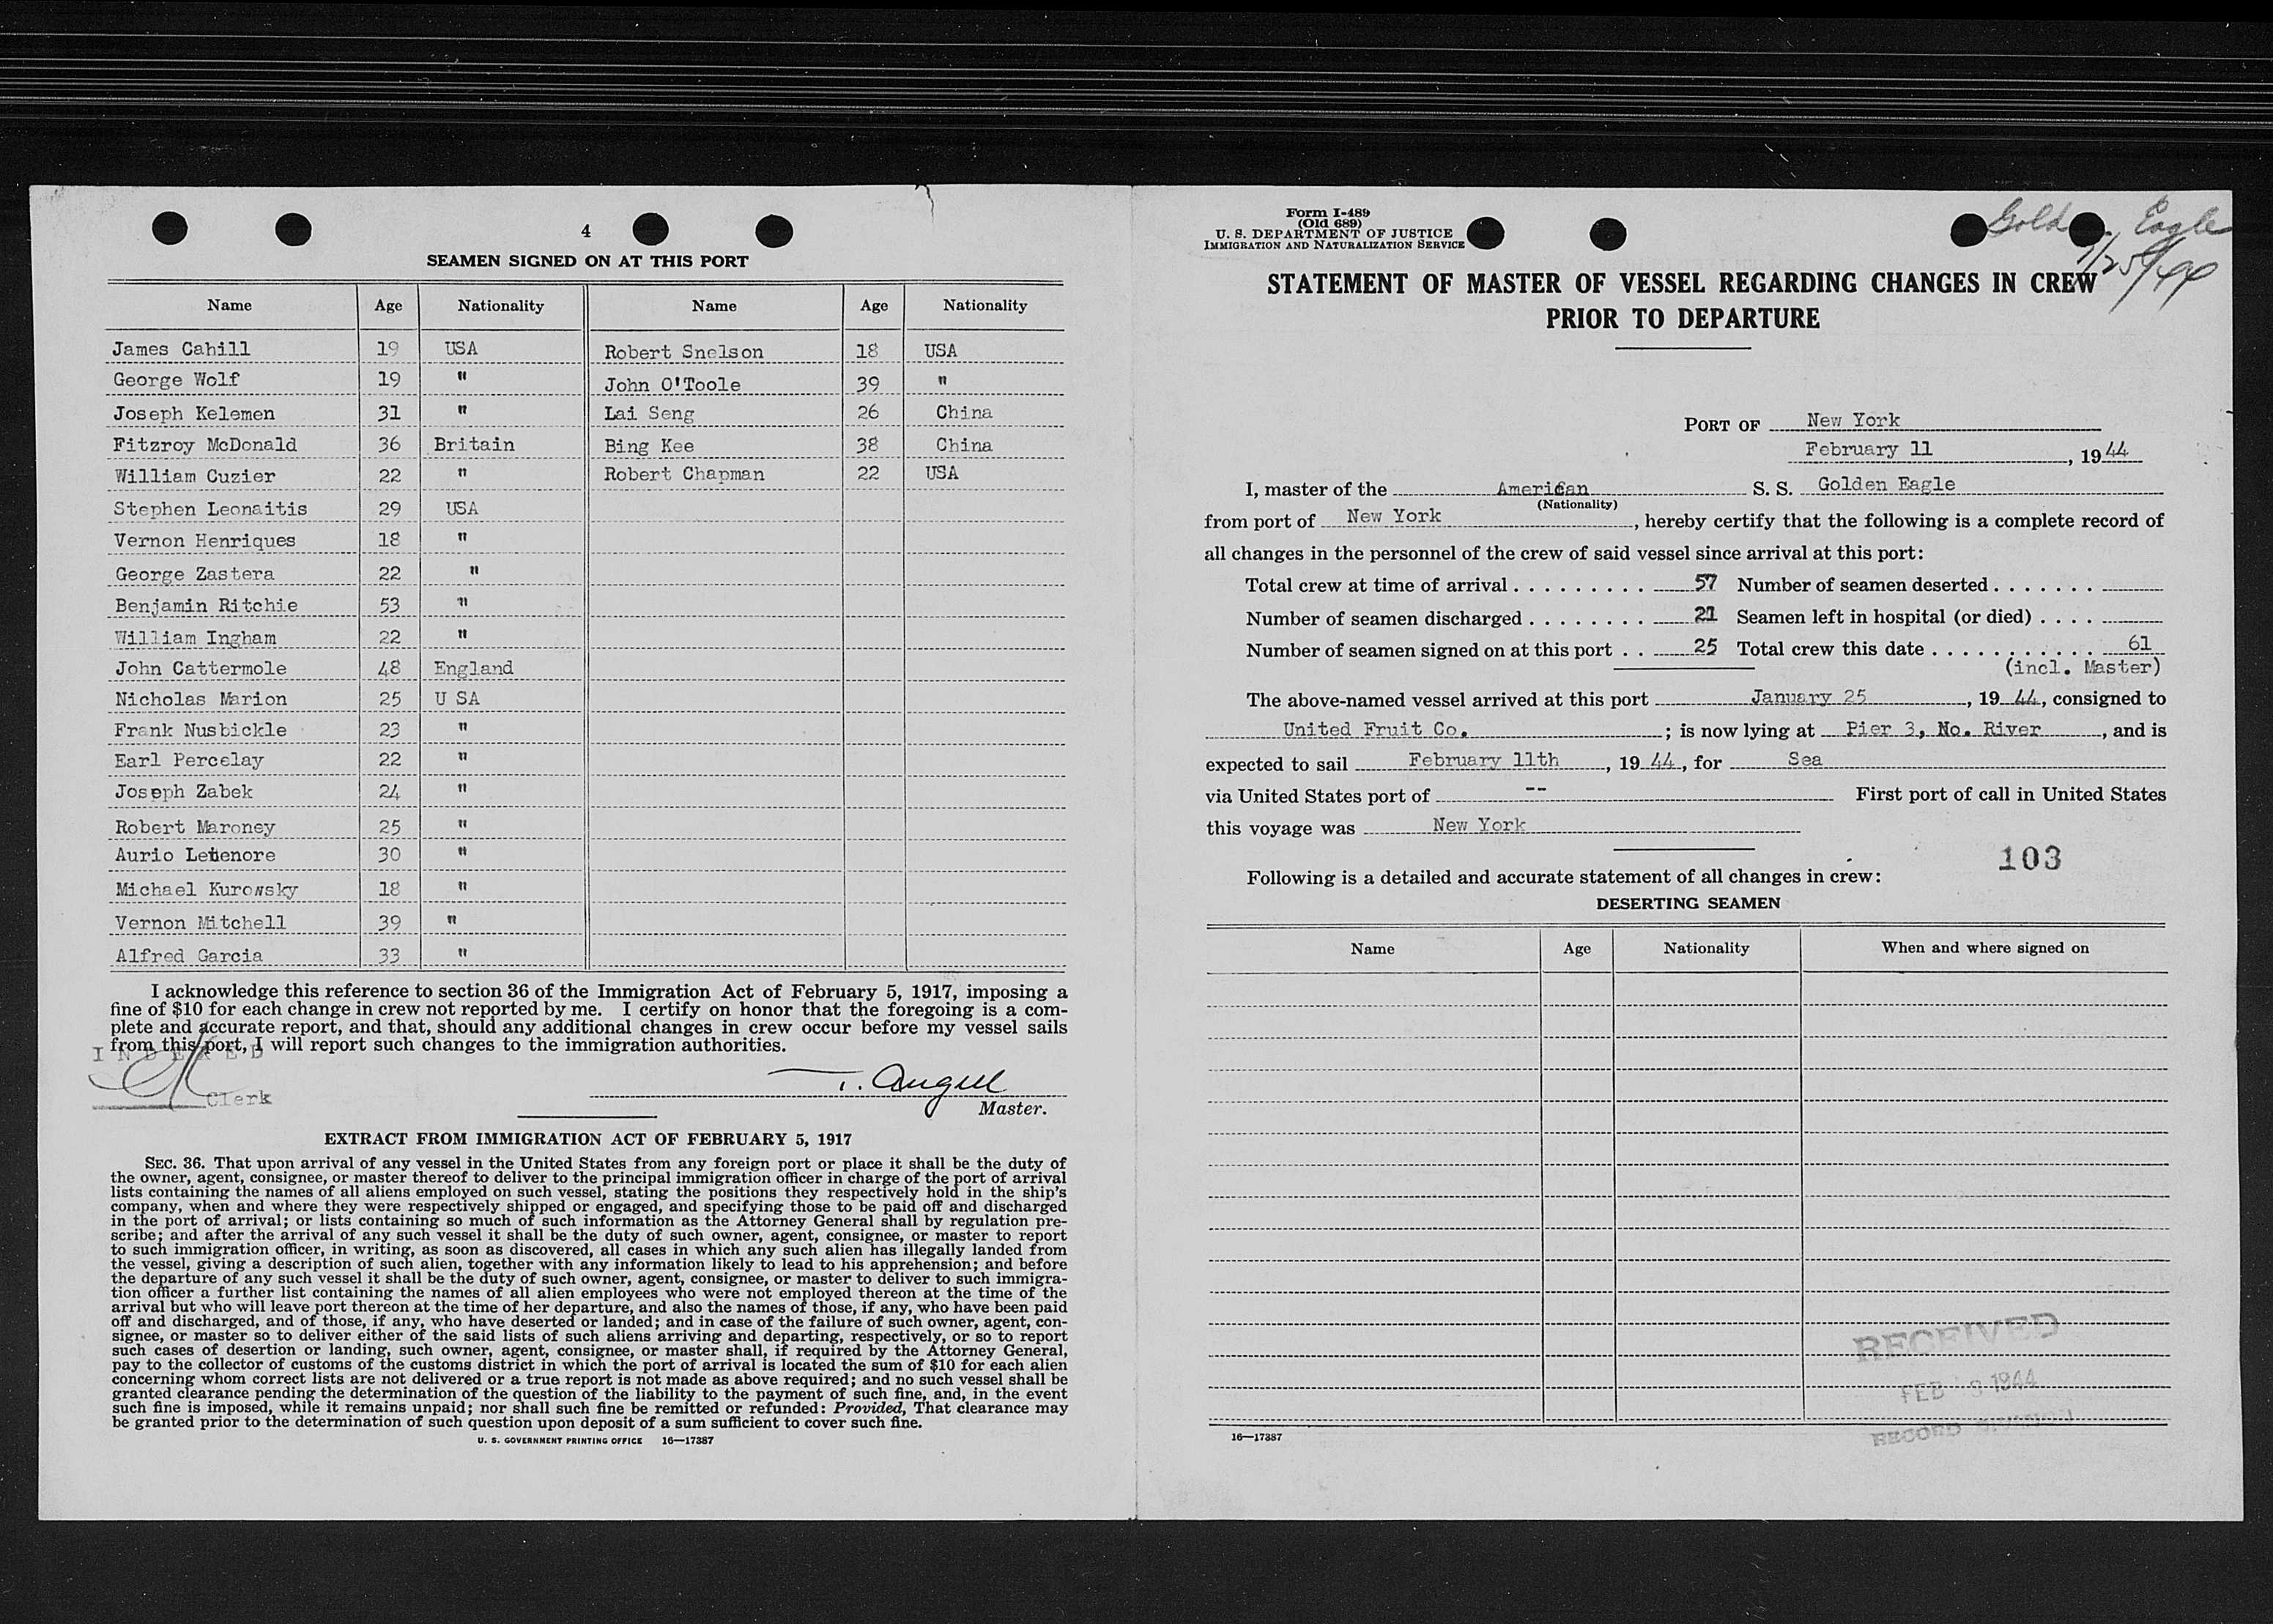 4
SEAMEN SIGNED ON AT THIS PORT
Name Age Nationality Name Age Nationality
James Cahill 19 USA Robert Snelson 18 USA
George Wolf 19 " John O'Toole 39 "
Joseph Kelemen 31 " Lai Seng 26 China
Fitzroy McDonald 36 Britain Bing Kee 38 China
William Cuzier 22 " Robert Chapman 22 USA
Stephen Leonaitis 29 USA
Vernon Henriques 18 "
George Zastera 22 "
Benjamin Ritchie 53 "
William Ingham 22 "
John Cattermole 48 England
Nicholas Marion 25 U SA
Frank Nusbickle 23 "
Earl Percelay 22 "
Joseph Zabek 24 "
Robert Maroney 25 "
Aurio 30 "
Michael Kurowsky 18 "
Vernon Mitchell 39 "
Alfred Garcia 33 "
I acknowledge this reference to section 36 of the Immigration Act of February 5, 1917, imposing a
fine of $10 for each change in crew not reported by me. I certify on honor that the foregoing is a com-
plete and accurate report, and that, should any additional changes in crew occur before my vessel sails
from this port, I will report such changes to the immigration authorities.
INDEXED
Clerk
Master.
EXTRACT FROM IMMIGRATION ACT OF FEBRUARY 5, 1917
SEC. 36. That upon arrival of any vessel in the United States from any foreign port or place it shall be the duty of
the owner, agent, consignee, or master thereof to deliver to the principal immigration officer in charge of the port of arrival
lists containing the names of all aliens employed on such vessel, stating the positions they respectively hold in the ship's
company, when and where they were respectively shipped or engaged, and specifying those to be paid off and discharged
in the port of arrival; or lists containing so much of such information as the Attorney General shall by regulation pre-
scribe; and after the arrival of any such vessel it shall be the duty of such owner, agent, consignee, or master to report
to such immigration officer, in writing, as soon as discovered, all cases in which any such alien has illegally landed from
the vessel, giving a description of such alien, together with any information likely to lead to his apprehension; and before
the departure of any such vessel it shall be the duty of such owner, agent, consignee, or master to deliver to such immigra-
tion officer a further list containing the names of all alien employees who were not employed thereon at the time of the
arrival but who will leave port thereon at the time of her departure, and also the names of those, if any, who have been paid
off and discharged, and of those, if any, who have deserted or landed; and in case of the failure of such owner, agent, con-
signee, or master so to deliver either of the said lists of such aliens arriving and departing, respectively, or so to report
such cases of desertion or landing, such owner, agent, consignee, or master shall, if required by the Attorney General,
pay to the collector of customs of the customs district in which the port of arrival is located the sum of $10 for each alien
concerning whom correct lists are not delivered or a true report is not made as above required; and no such vessel shall be
granted clearance pending the determination of the question of the liability to the payment of such fine, and, in the event
such fine is imposed, while it remains unpaid; nor shall such fine be remitted or refunded: Provided, That clearance may
be granted prior to the determination of such question upon deposit of a sum sufficient to cover such fine.
U. S. GOVERNMENT PRINTING OFFICE 16—17387
Form I-489
(Old 689)
U. S. DEPARTMENT OF JUSTICE
IMMIGRATION AND NATURALIZATION SERVICE
Gold Eagle
1/25/44
STATEMENT OF MASTER OF VESSEL REGARDING CHANGES IN CREW
PRIOR TO DEPARTURE
PORT OF New York
February 11, 1944
I, master of the American S. S. Golden Eagle
(Nationality)
from port of New York, hereby certify that the following is a complete record of
all changes in the personnel of the crew of said vessel since arrival at this port:
Total crew at time of arrival . . . . . . . . . 57 Number of seamen deserted . . . . . . .
Number of seamen discharged . . . . . . . . 21 Seamen left in hospital (or died) . . . .
Number of seamen signed on at this port . . 25 Total crew this date . . . . . . . . . . . 61
(incl. Master)
The above-named vessel arrived at this port January 25, 1944, consigned to
United Fruit Co. ; is now lying at Pier 3, No. River, and is
expected to sail February 11th, 1944, for Sea
via United States port of -- First port of call in United States
this voyage was New York
103
Following is a detailed and accurate statement of all changes in crew:
DESERTING SEAMEN
Name Age Nationality When and where signed on
RECEIVED
FEB 1944
RECORD DIVISION
16—17387